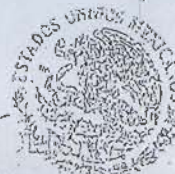 ESTADOS UNIDOS MEXICANOS